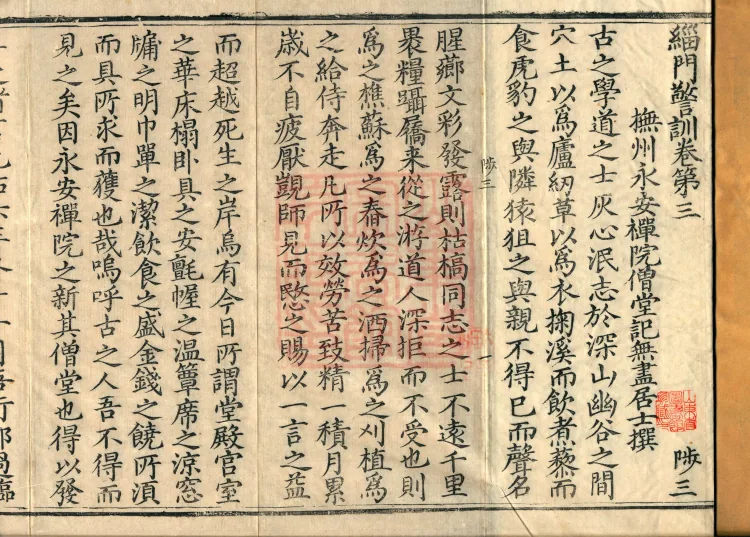 緇門警訓卷第三　陟三
撫州永安禪院僧堂記無盡居士撰
古之學道之士灰心泯志於深山幽谷之間
穴土以爲廬紉草以爲衣掬溪而飲煮藜而
食虎豹之與隣猿狙之與親不得已而聲名
陟三
腥薌文彩發露則枯槁同志之士不遠千里
褁糧躡屩来從之游道人深拒而不受也則
爲之樵蘇爲之舂炊爲之洒掃爲之刈植爲
之給侍奔走凡所以效勞苦致精一積月累
歳不自疲厭覬師見而愍之賜以一言之益
而超越死生之岸烏有今日所謂堂殿宫室
之華床榻卧具之安氈幄之温簟席之涼窓
牖之明巾單之潔飲食之盛金錢之饒所湏
而具所求而獲也哉嗚呼古之人吾不得而
見之矣因永安禪院之新其僧堂也得以發